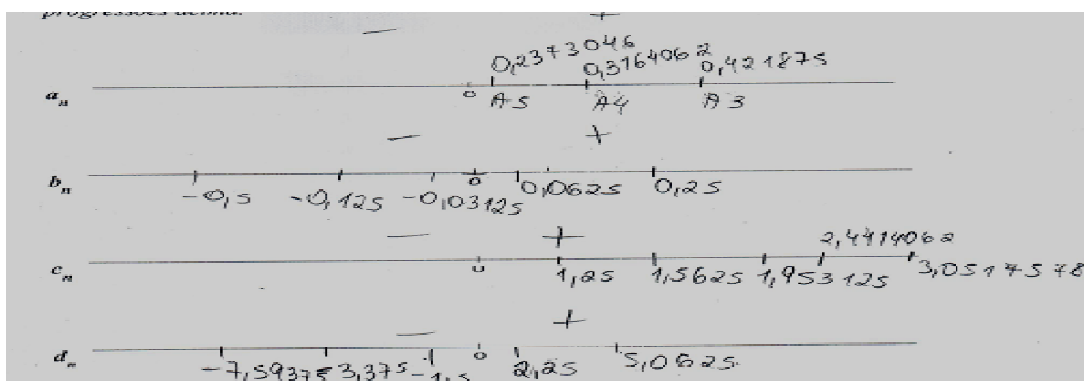 progressões acima.
— +
0,2373046 0,3164062 0,421875
aₙ 0 A5 A4 A3
— +
bₙ -0,5 -0,125 -0,03125 0 0,0625 0,25
— + 2,4414062
cₙ 0 1,25 1,5625 1,953125 3,0517578
— +
dₙ -7,59375 -3,375 -1,5 0 2,25 5,0625